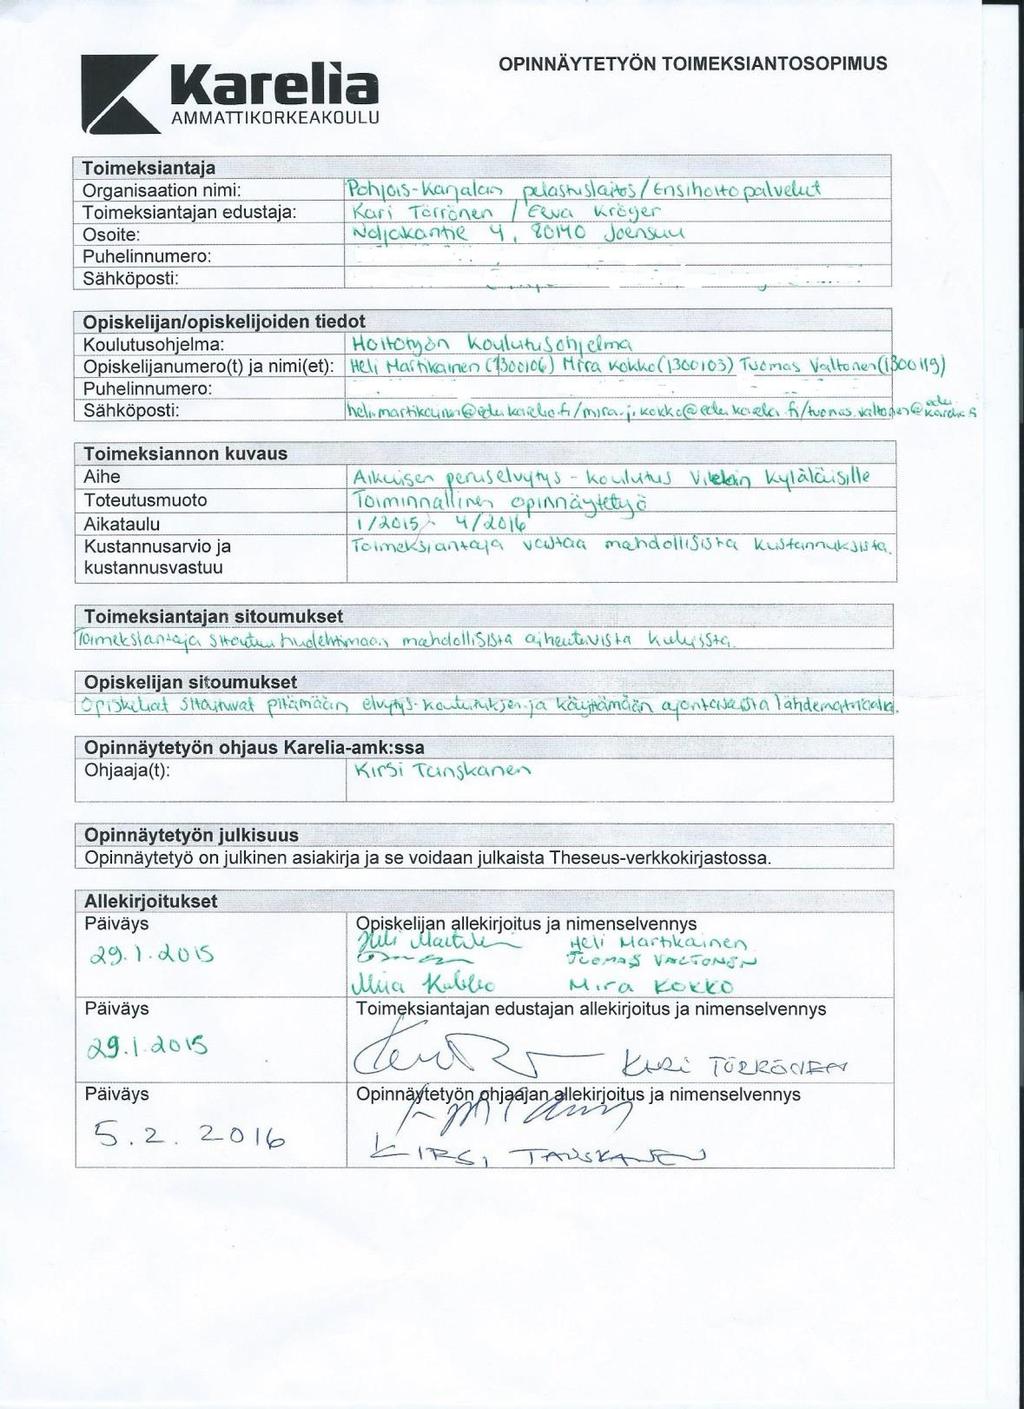 OPINNÄYTETYÖN TOIMEKSIANTOSOPIMUS
Karelia
AMMATTIKORKEAKOULU
Toimeksiantaja
Organisaation nimi: Pohjois-Karjalan pelastuslaitos / Ensihoitopalvelut
Toimeksiantajan edustaja: Kari Törrönen / Eeva Kröger
Osoite: Noljakantie 4, 80140 Joensuu
Puhelinnumero:
Sähköposti:
Opiskelijan/opiskelijoiden tiedot
Koulutusohjelma: Hoitotyön koulutusohjelma
Opiskelijanumero(t) ja nimi(et): Heli Martikainen (1300106) Mira Kokko (1300103) Tuomas Valtonen (1300119)
Puhelinnumero:
Sähköposti: heli.martikainen@edu.karelia.fi / mira.j.kokko@edu.karelia.fi / tuomas.valtonen@edu.karelia.fi
Toimeksiannon kuvaus
Aihe Aikuisen peruselvytys - koulutus kyläläisille
Toteutusmuoto Toiminnallinen opinnäytetyö
Aikataulu 1/2015 - 4/2016
Kustannusarvio ja Toimeksiantaja vastaa mahdollisista kustannuksista.
kustannusvastuu
Toimeksiantajan sitoumukset
Toimeksiantaja sitoutuu huolehtimaan mahdollisista aiheutuvista kuluista.
Opiskelijan sitoumukset
Opiskelijat sitoutuvat pitämään elvytys-koulutuksen ja käyttämään ajantasaista lähdemateriaalia.
Opinnäytetyön ohjaus Karelia-amk:ssa
Ohjaaja(t): Kirsi Tanskanen
Opinnäytetyön julkisuus
Opinnäytetyö on julkinen asiakirja ja se voidaan julkaista Theseus-verkkokirjastossa.
Allekirjoitukset
Päiväys Opiskelijan allekirjoitus ja nimenselvennys
Heli Martikainen
29.1.2015 TUOMAS VALTONEN
Mira Kokko Mira KOKKO
Päiväys Toimeksiantajan edustajan allekirjoitus ja nimenselvennys
29.1.2015 KARI TÖRRÖNEN
Päiväys Opinnäytetyön ohjaajan allekirjoitus ja nimenselvennys
5.2.2016
KIRSI TANSKANEN